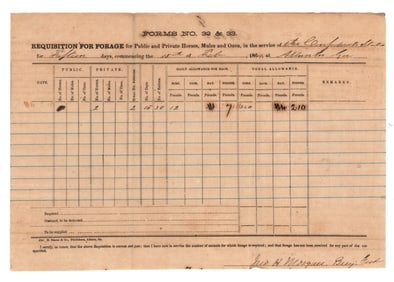 FORMS NO. 32 & 33.
REQUISITION FOR FORAGE for Public and Private Horses, Mules and Oxen, in the service of the Confederate States
for Fifteen days, commencing the 15th of Feb 186 Atlanta Ga
PUBLIC. PRIVATE. DAILY ALLOWANCE FOR EACH. TOTAL ALLOWANCE.
DATE. No. of Horses. No. of Mules. No. of Oxen. No. of Horses. No. of Mules. No. of Oxen. Total No. of Animals. No. of Days. No. of Rations. CORN. HAY. REMARKS.
Pounds. Pounds. Pounds. Pounds. Pounds. Pounds. Pounds. Pounds.
2 2 15 30 12 7 210
Required
On hand, to be deducted
To be supplied
I Certify, on honor, that the above Requisition is correct and just; that I have now in service the number of animals for which forage is required; and that forage has not been received for any part of the time specified.
H. Morgan